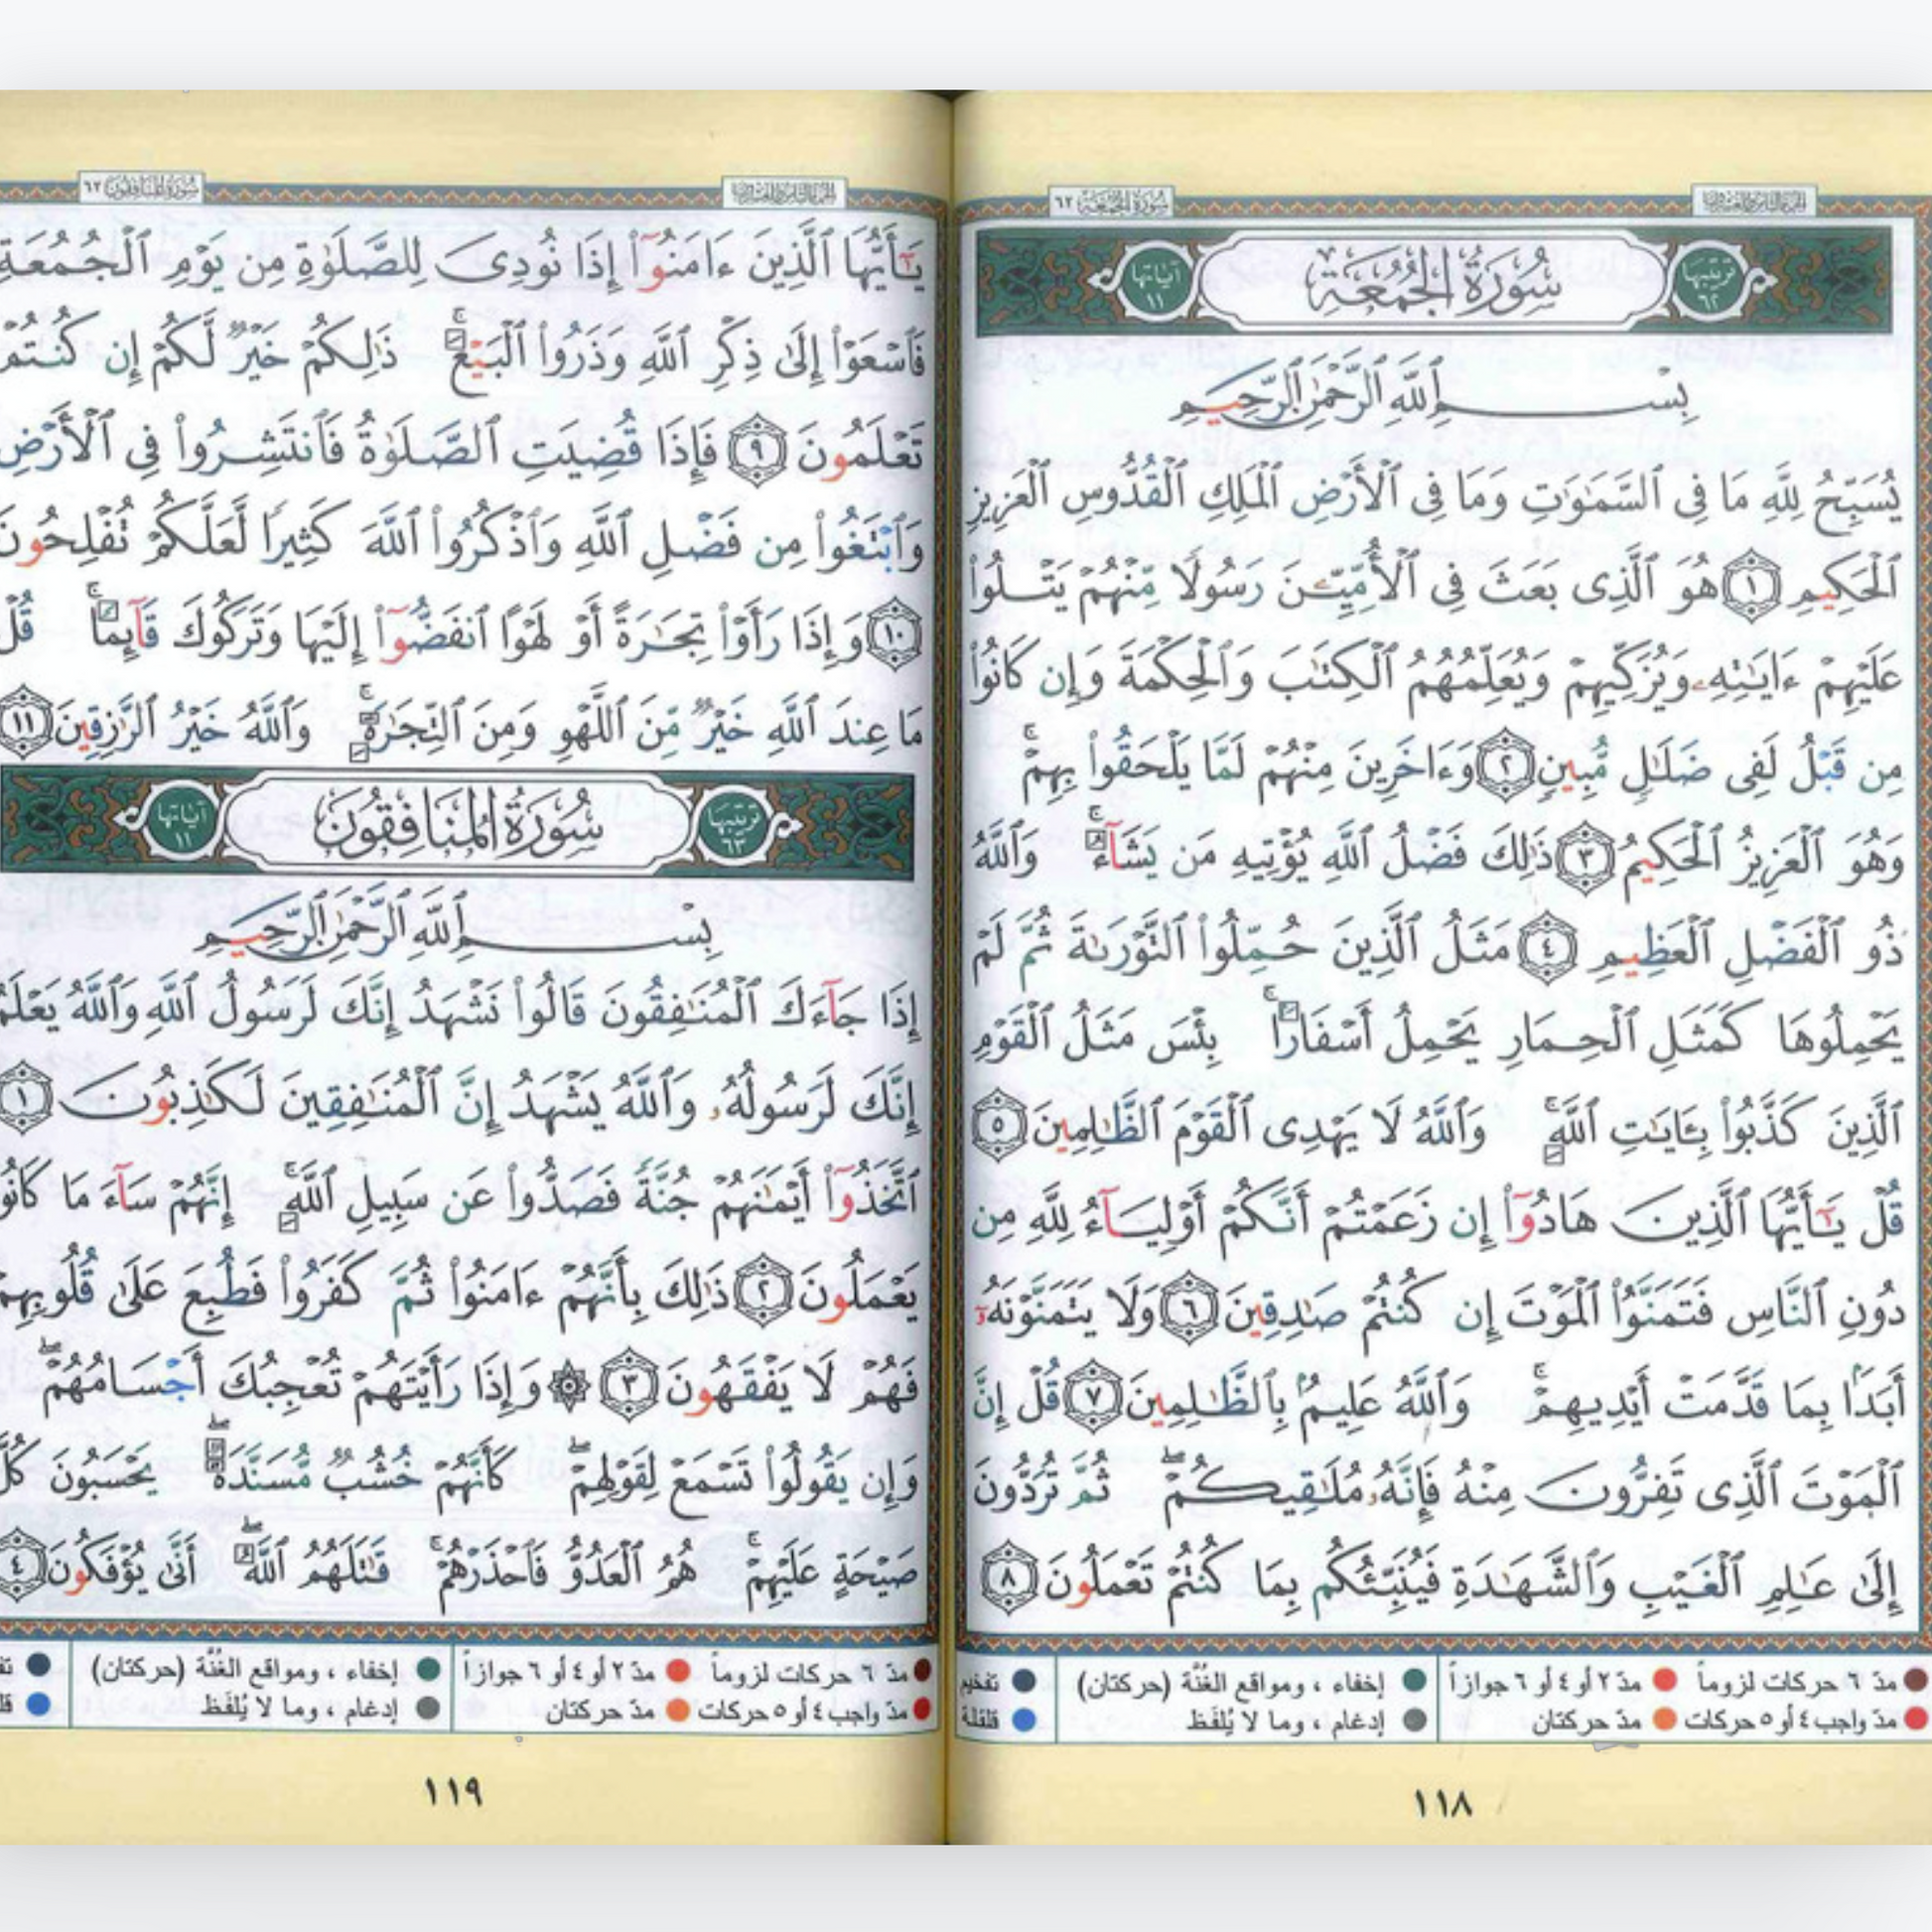 الجزء الثامن والعشرون
سُورَةُ الجُمُعَة ٦٢
ترتيبها ٦٢
سُورَةُ الجُمُعَةِ
آياتها ١١
بِسْمِ ٱللَّهِ ٱلرَّحْمَٰنِ ٱلرَّحِيمِ
يُسَبِّحُ لِلَّهِ مَا فِى ٱلسَّمَٰوَٰتِ وَمَا فِى ٱلْأَرْضِ ٱلْمَلِكِ ٱلْقُدُّوسِ ٱلْعَزِيزِ
ٱلْحَكِيمِ ١ هُوَ ٱلَّذِى بَعَثَ فِى ٱلْأُمِّيِّۦنَ رَسُولًا مِّنْهُمْ يَتْلُوا۟
عَلَيْهِمْ ءَايَٰتِهِۦ وَيُزَكِّيهِمْ وَيُعَلِّمُهُمُ ٱلْكِتَٰبَ وَٱلْحِكْمَةَ وَإِن كَانُوا۟
مِن قَبْلُ لَفِى ضَلَٰلٍ مُّبِينٍ ٢ وَءَاخَرِينَ مِنْهُمْ لَمَّا يَلْحَقُوا۟ بِهِمْ ۚ
وَهُوَ ٱلْعَزِيزُ ٱلْحَكِيمُ ٣ ذَٰلِكَ فَضْلُ ٱللَّهِ يُؤْتِيهِ مَن يَشَآءُ ۚ وَٱللَّهُ
ذُو ٱلْفَضْلِ ٱلْعَظِيمِ ٤ مَثَلُ ٱلَّذِينَ حُمِّلُوا۟ ٱلتَّوْرَىٰةَ ثُمَّ لَمْ
يَحْمِلُوهَا كَمَثَلِ ٱلْحِمَارِ يَحْمِلُ أَسْفَارًۢا ۚ بِئْسَ مَثَلُ ٱلْقَوْمِ
ٱلَّذِينَ كَذَّبُوا۟ بِـَٔايَٰتِ ٱللَّهِ ۚ وَٱللَّهُ لَا يَهْدِى ٱلْقَوْمَ ٱلظَّٰلِمِينَ ٥
قُلْ يَٰٓأَيُّهَا ٱلَّذِينَ هَادُوٓا۟ إِن زَعَمْتُمْ أَنَّكُمْ أَوْلِيَآءُ لِلَّهِ مِن
دُونِ ٱلنَّاسِ فَتَمَنَّوُا۟ ٱلْمَوْتَ إِن كُنتُمْ صَٰدِقِينَ ٦ وَلَا يَتَمَنَّوْنَهُۥٓ
أَبَدًۢا بِمَا قَدَّمَتْ أَيْدِيهِمْ ۚ وَٱللَّهُ عَلِيمٌۢ بِٱلظَّٰلِمِينَ ٧ قُلْ إِنَّ
ٱلْمَوْتَ ٱلَّذِى تَفِرُّونَ مِنْهُ فَإِنَّهُۥ مُلَٰقِيكُمْ ۖ ثُمَّ تُرَدُّونَ
إِلَىٰ عَٰلِمِ ٱلْغَيْبِ وَٱلشَّهَٰدَةِ فَيُنَبِّئُكُم بِمَا كُنتُمْ تَعْمَلُونَ ٨
مدّ ٦ حركات لزوماً مدّ ٢ أو ٤ أو ٦ جوازاً إخفاء ، ومواقع الغُنَّة (حركتان) تفخيم
مدّ واجب ٤ أو ٥ حركات مدّ حركتان إدغام ، وما لا يُلفَظ قلقلة
١١٨
الجزء الثامن والعشرون
سُورَةُ المُنَافِقُون ٦٣
يَٰٓأَيُّهَا ٱلَّذِينَ ءَامَنُوٓا۟ إِذَا نُودِىَ لِلصَّلَوٰةِ مِن يَوْمِ ٱلْجُمُعَةِ
فَٱسْعَوْا۟ إِلَىٰ ذِكْرِ ٱللَّهِ وَذَرُوا۟ ٱلْبَيْعَ ۚ ذَٰلِكُمْ خَيْرٌ لَّكُمْ إِن كُنتُمْ
تَعْلَمُونَ ٩ فَإِذَا قُضِيَتِ ٱلصَّلَوٰةُ فَٱنتَشِرُوا۟ فِى ٱلْأَرْضِ
وَٱبْتَغُوا۟ مِن فَضْلِ ٱللَّهِ وَٱذْكُرُوا۟ ٱللَّهَ كَثِيرًا لَّعَلَّكُمْ تُفْلِحُونَ
١٠ وَإِذَا رَأَوْا۟ تِجَٰرَةً أَوْ لَهْوًا ٱنفَضُّوٓا۟ إِلَيْهَا وَتَرَكُوكَ قَآئِمًا ۚ قُلْ
مَا عِندَ ٱللَّهِ خَيْرٌ مِّنَ ٱللَّهْوِ وَمِنَ ٱلتِّجَٰرَةِ ۚ وَٱللَّهُ خَيْرُ ٱلرَّٰزِقِينَ ١١
ترتيبها ٦٣
سُورَةُ المُنَافِقُونَ
آياتها ١١
بِسْمِ ٱللَّهِ ٱلرَّحْمَٰنِ ٱلرَّحِيمِ
إِذَا جَآءَكَ ٱلْمُنَٰفِقُونَ قَالُوا۟ نَشْهَدُ إِنَّكَ لَرَسُولُ ٱللَّهِ وَٱللَّهُ يَعْلَمُ
إِنَّكَ لَرَسُولُهُۥ وَٱللَّهُ يَشْهَدُ إِنَّ ٱلْمُنَٰفِقِينَ لَكَٰذِبُونَ ١
ٱتَّخَذُوٓا۟ أَيْمَٰنَهُمْ جُنَّةً فَصَدُّوا۟ عَن سَبِيلِ ٱللَّهِ ۚ إِنَّهُمْ سَآءَ مَا كَانُوا۟
يَعْمَلُونَ ٢ ذَٰلِكَ بِأَنَّهُمْ ءَامَنُوا۟ ثُمَّ كَفَرُوا۟ فَطُبِعَ عَلَىٰ قُلُوبِهِمْ
فَهُمْ لَا يَفْقَهُونَ ٣ ۞ وَإِذَا رَأَيْتَهُمْ تُعْجِبُكَ أَجْسَامُهُمْ ۖ
وَإِن يَقُولُوا۟ تَسْمَعْ لِقَوْلِهِمْ ۖ كَأَنَّهُمْ خُشُبٌ مُّسَنَّدَةٌ ۖ يَحْسَبُونَ كُلَّ
صَيْحَةٍ عَلَيْهِمْ ۚ هُمُ ٱلْعَدُوُّ فَٱحْذَرْهُمْ ۚ قَٰتَلَهُمُ ٱللَّهُ ۖ أَنَّىٰ يُؤْفَكُونَ ٤
مدّ ٦ حركات لزوماً مدّ ٢ أو ٤ أو ٦ جوازاً إخفاء ، ومواقع الغُنَّة (حركتان)
مدّ واجب ٤ أو ٥ حركات مدّ حركتان إدغام ، وما لا يُلفَظ
١١٩